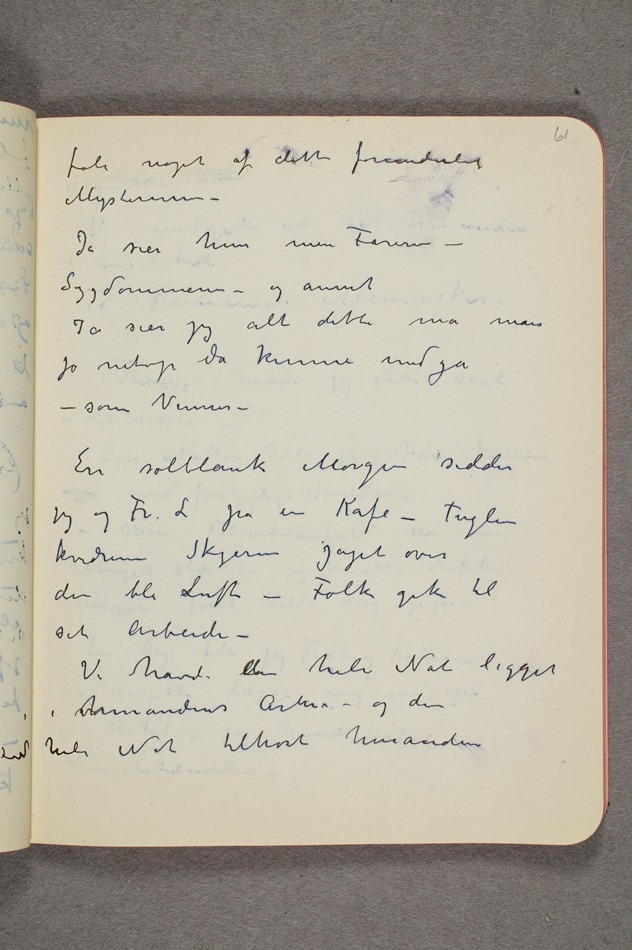 61
føle noget af dette forunderlige
Mysterium –
Ja sier hun men Faren –
Sygdommen – og annet
Ja sier jeg alt dette må man
jo netop da kunne undgå
– som Venner –
En solblank Morgen sidder
jeg og Fr. L på en Kafe – Fuglen
kvidrer Skyerne jaget over
den blå Luft – Folk gik til
sit Arbeide –
Vi havde den hele Nat ligget
i hinandens Arme – og den
hele Nat tilhørt hinanden